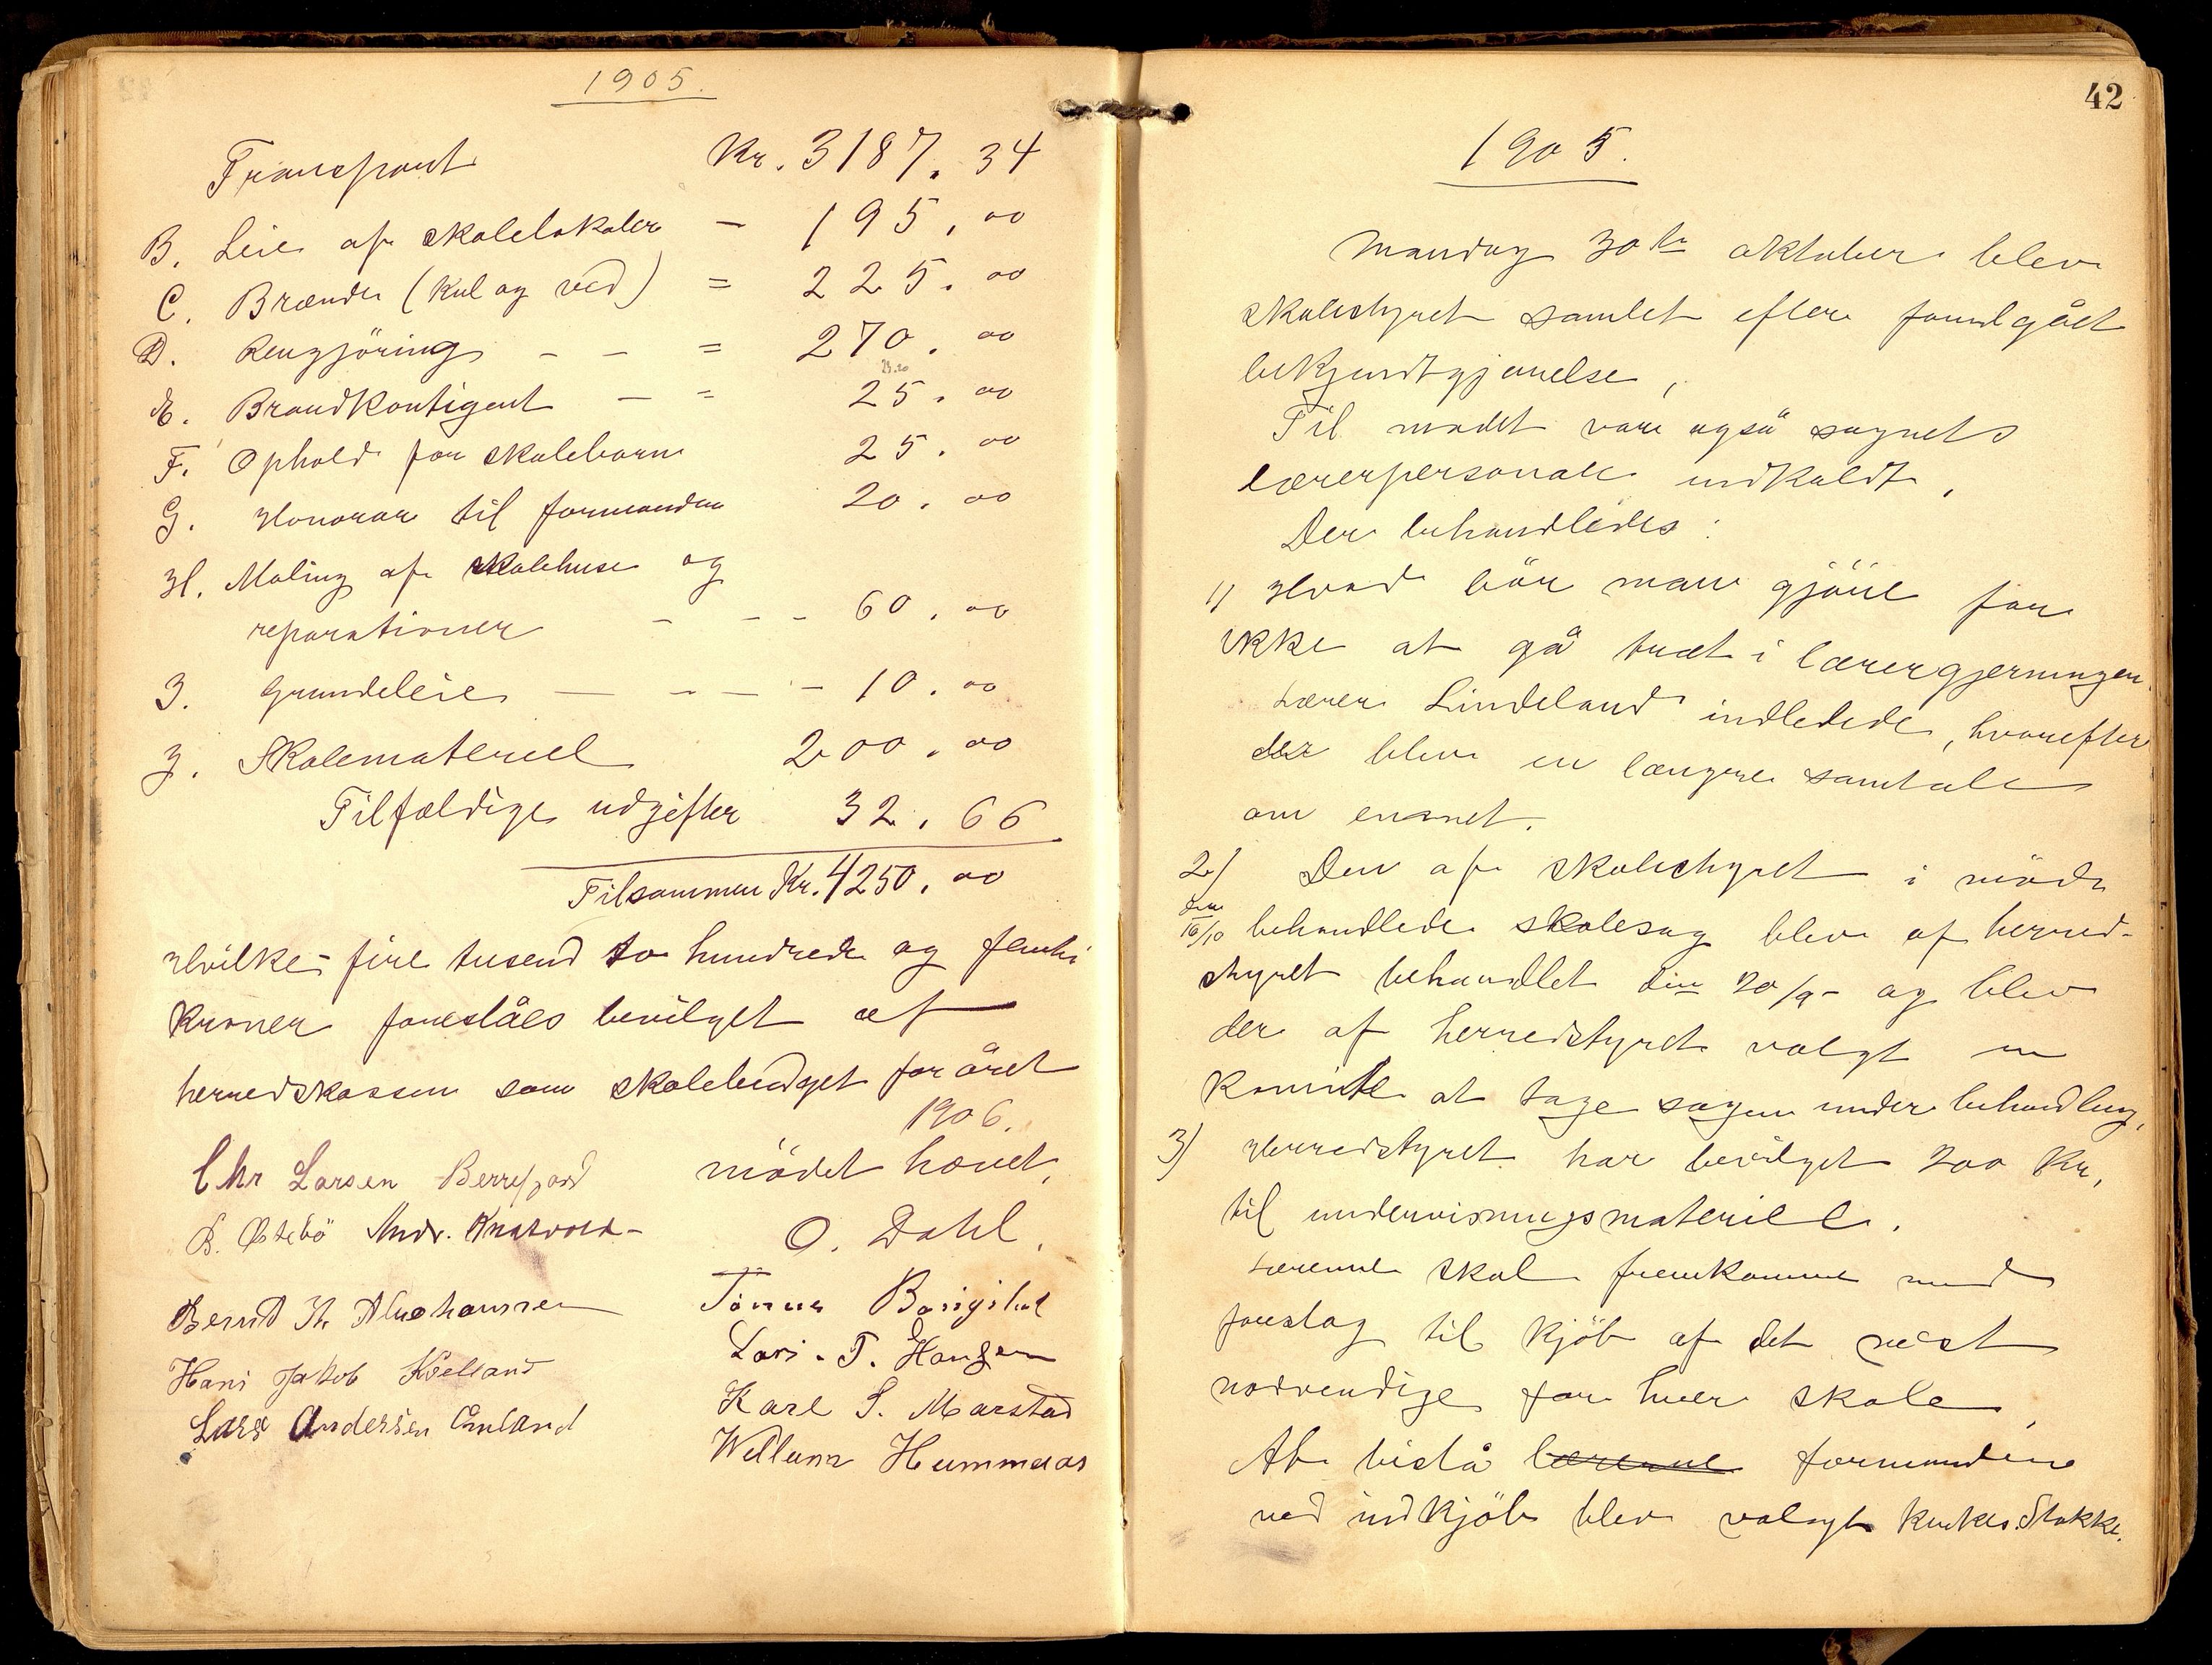 1905.
Transport Kr. 3187.34
B. Leie af skolelokaler - 195.00
C. Brænde (Kul og ved) = 225.00
D. Rengjöring - - = 270.00
E. Brandkontigent - = 25.00
F. Ophold for skolebarn 25.00
G. Honorar til formanden 20.00
H. Maling af skolehuse og
reparationer - - - 60.00
I. Grundeleie - - - - 10.00
J. Skolemateriel 200.00
Tilfældige udgifter 32.66
Tilsammen Kr. 4250.00
Hvilke fire tusend to hundrede og femti
kroner foreslåes bevilget af
herredskassen som skolebudget for året
1906.
mödet hævet,
Chr Larsen O. Dahl.
B. Østebö Andr.
Bernt Th Abrahamsen
Lars. T. Hansen
Hans Jakob Kielland
Karl S. Marstad
Lars Andersen
Hummeras
42
1905.
Mandag 30te oktober blev
skolestyret samlet efter foregået
bekjendtgjørelse,
Til mødet vare også sognets
lærerpersonale indkaldt,
Der behandledes:
1) Hvad bör man gjöre for
ikke at gå træt i lærergjerningen.
Lærer Lindeland indledede, hvorefter
der blev en længere samtale
om emnet.
2) Den af skolestyret i möde
den 16/10 behandlede skolesag blev af herred-
styret behandlet den 20/9 - og blev
der af herredstyret valgt en
komite at tage sagen under behandling,
3) Herredstyret har bevilget 200 Kr,
til undervisningsmateriel.
Lærerne skal fremkomme med
forslag til kjöb af det mest
nødvendige for hver skole,
At bistå lærerne formanden
ved indkjöb blev valgt Stokke.